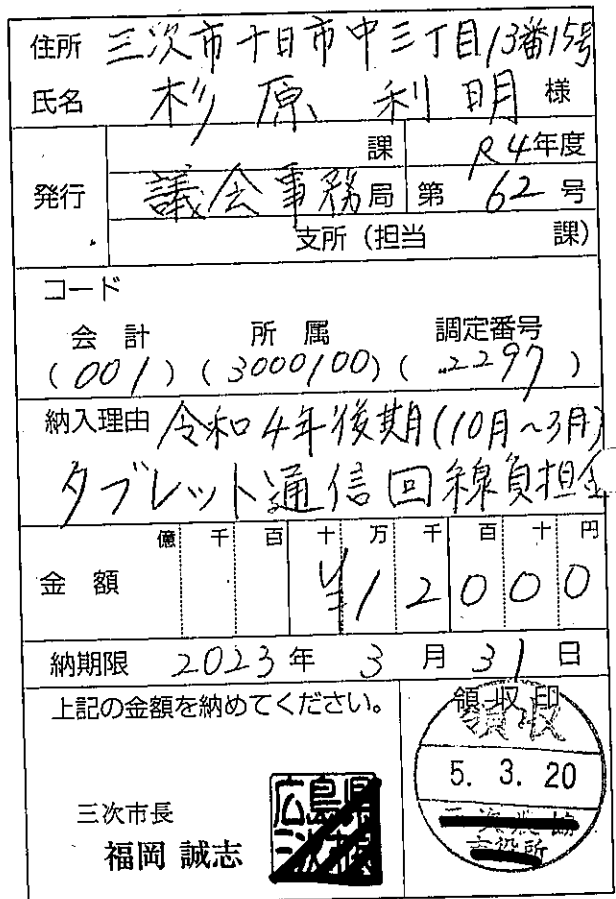 住所 三次市十日市中三丁目13番15号
氏名 杉原 利明 様
課 R4年度
発行 議会事務局 第 62 号
支所(担当 課)
コード
会計 所属 調定番号
(001) (3000100) (2297)
納入理由 令和4年後期(10月~3月)
タブレット通信回線負担金
億 千 百 十 万 千 百 十 円
金額 ¥12000
納期限 2023年 3月 31日
上記の金額を納めてください。
領収印
領収
5. 3. 20
市役所
三次市長
福岡 誠志
広島県